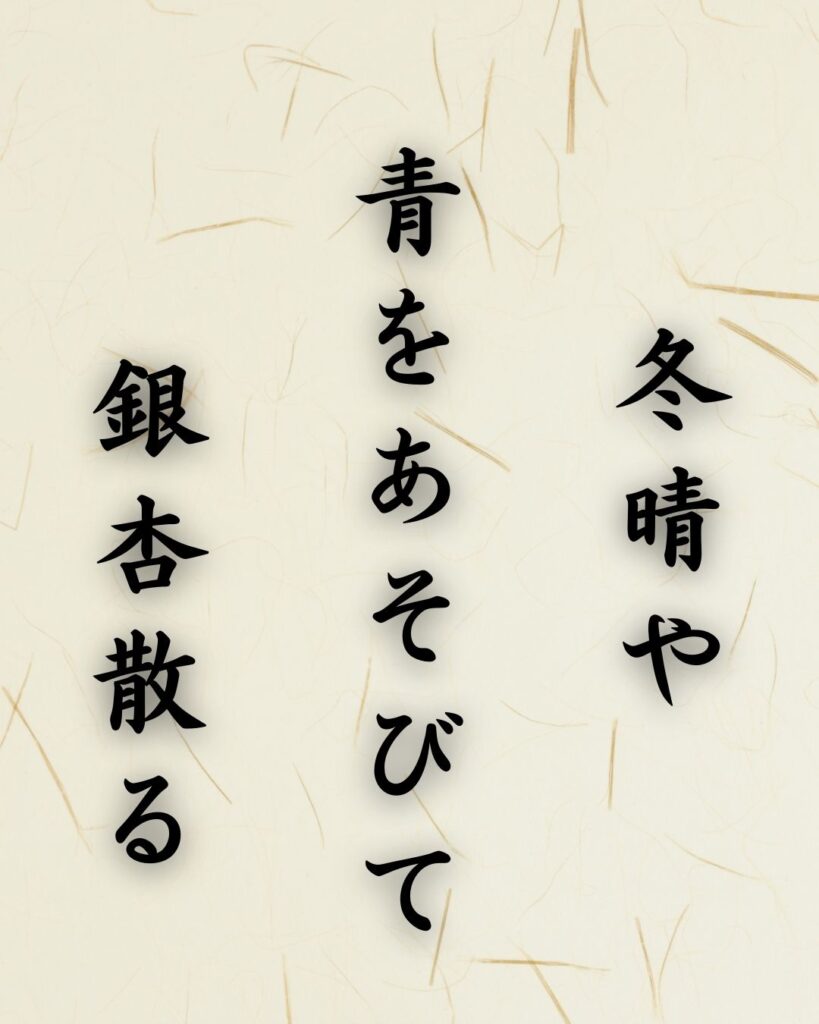 冬晴や
青をあそびて
銀杏散る